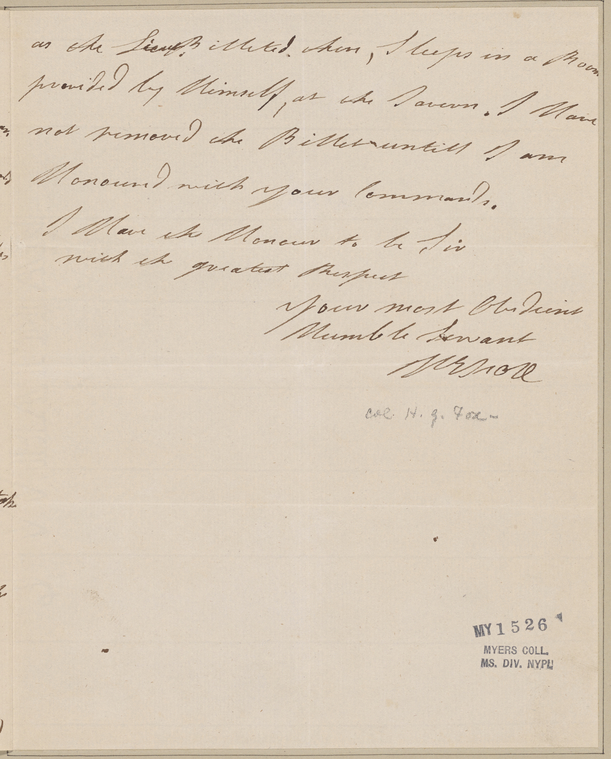 as the Lieut. Billeted. their, Sleeps in a Room
provided by Himself, at the Tavern. I Have
not removed the Billet untill I am
Honoured with your Commands.
I Have the Honour to be Sir
with the greatest Respect
your most Obedient
Humble Servant
HEFox
col. H. g. Fox
MY 1526
MYERS COLL.
MS. DIV. NYPL